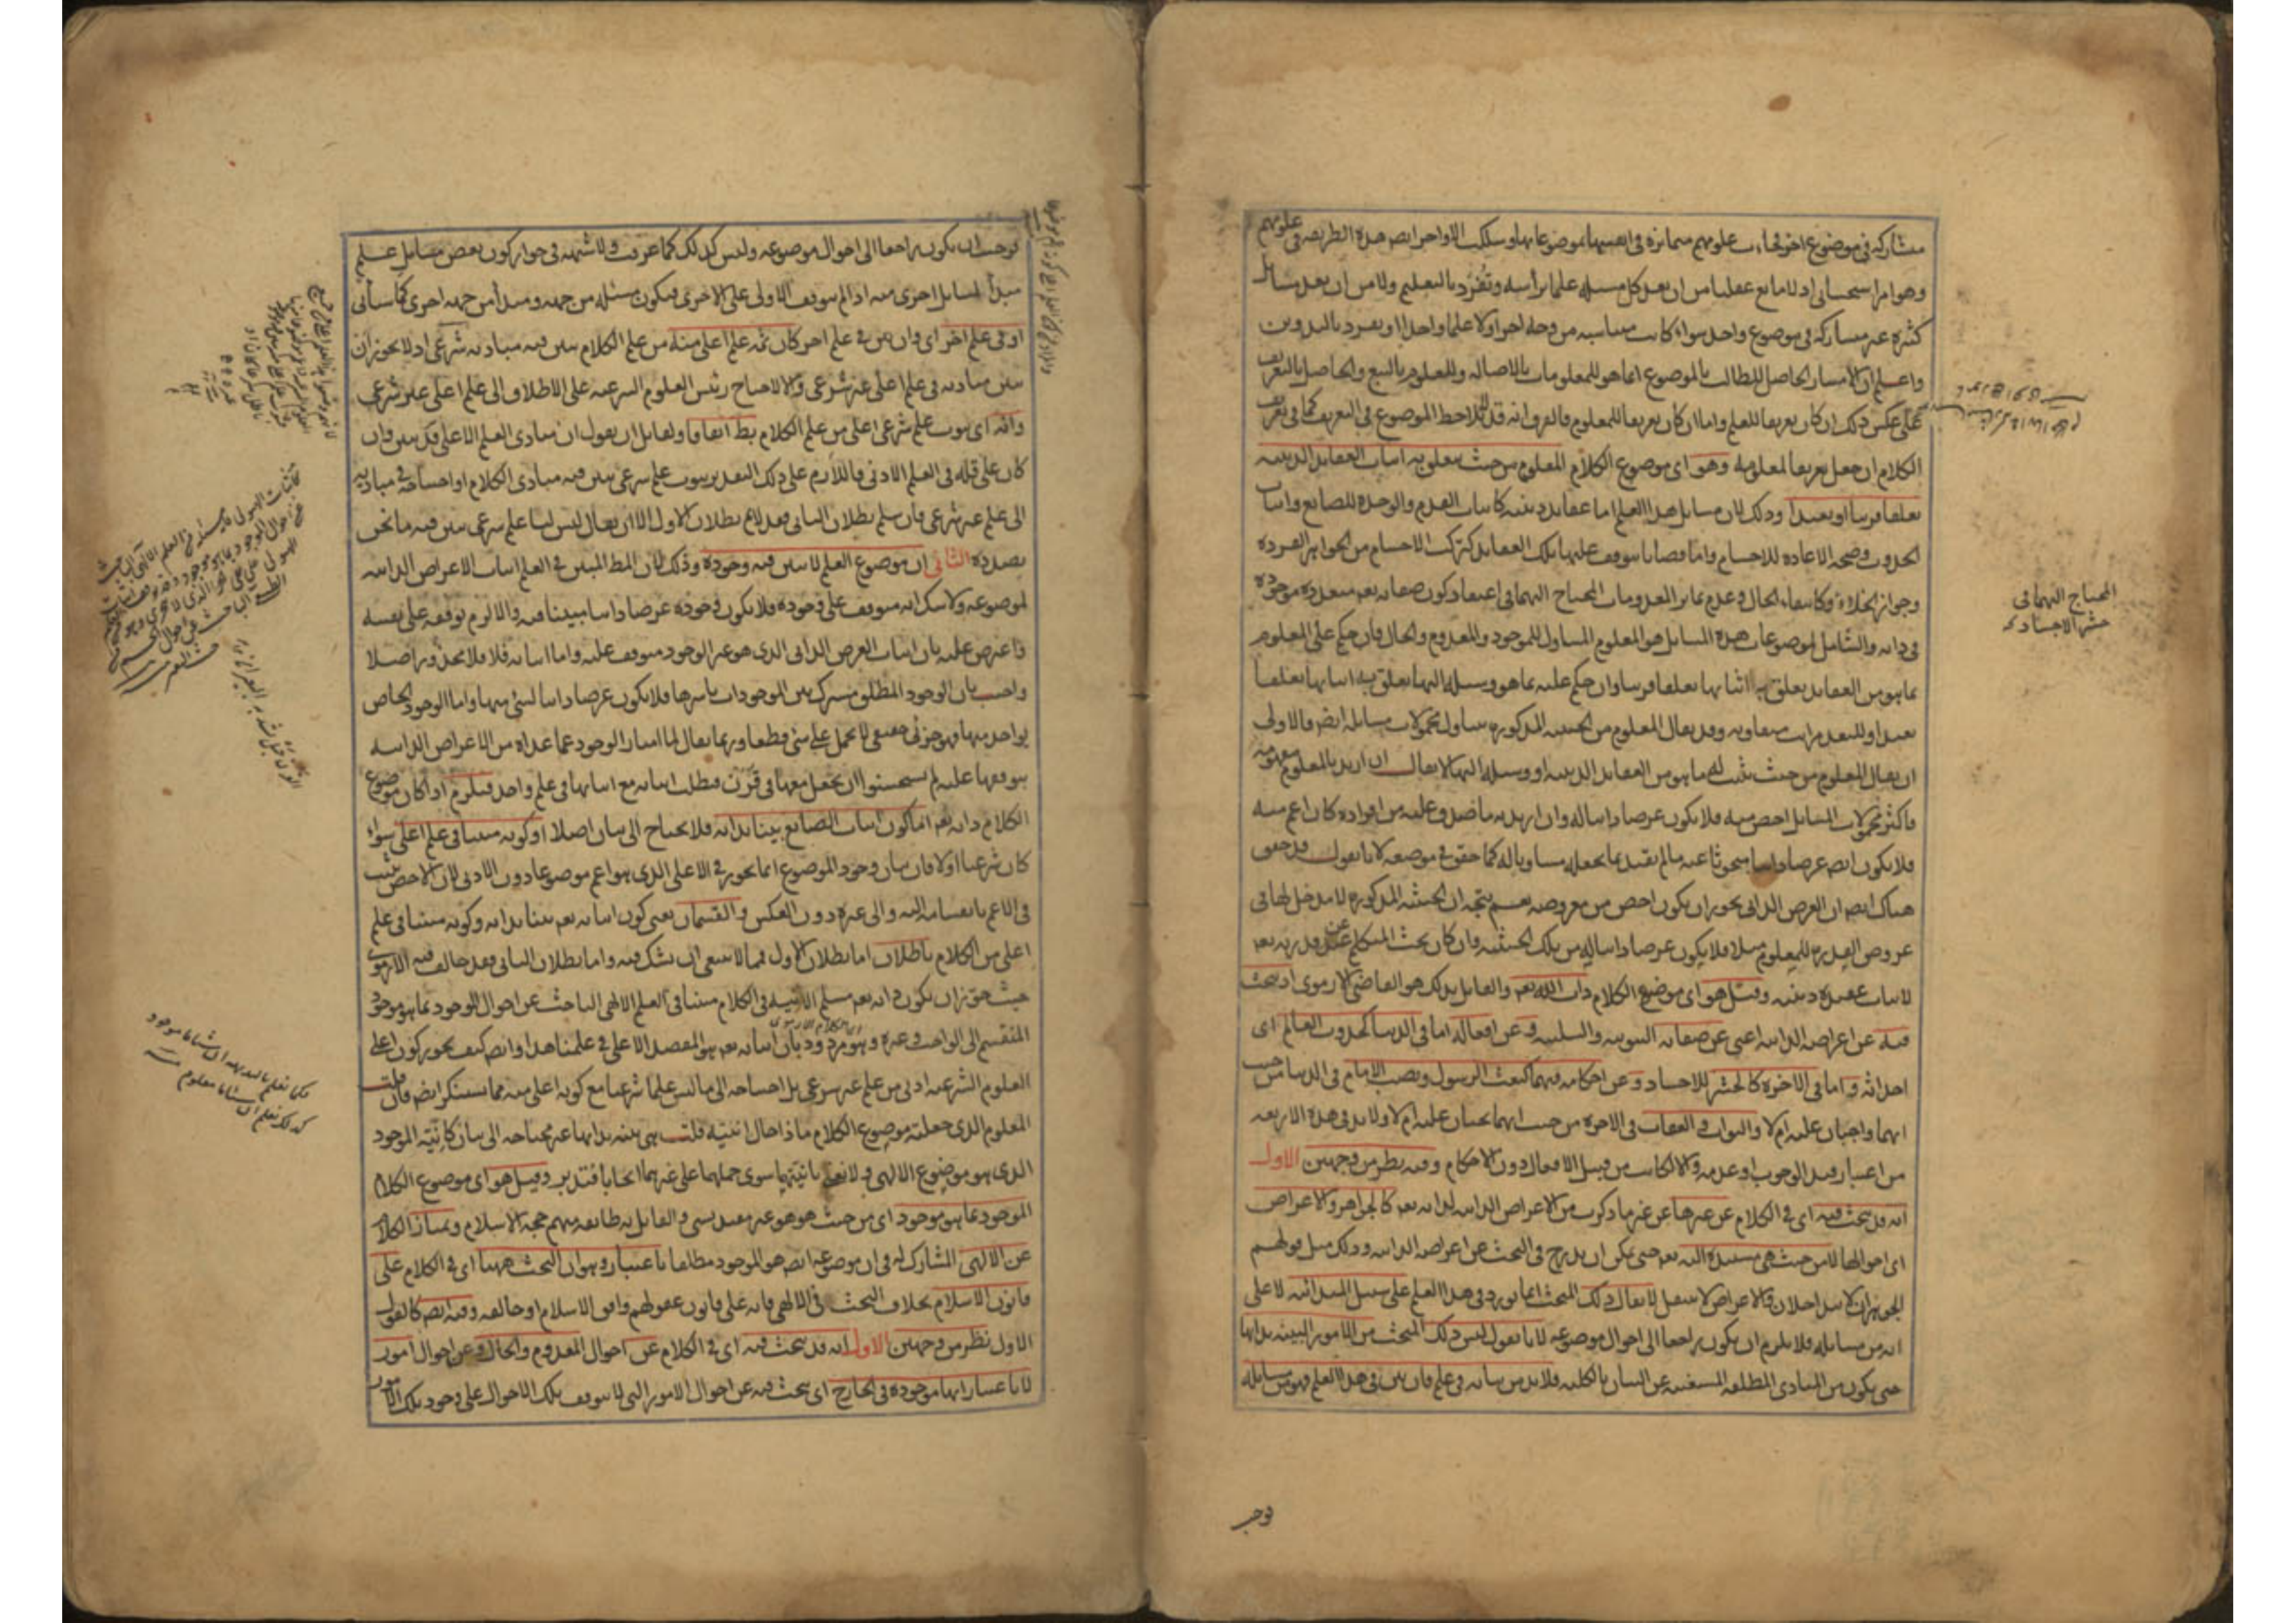 مشاركة في موضوع آخر فجاءت علومهم متمايزة في انفسها بموضوعاتها وسلكت الاواخر ايضا هذه الطريقة في علومهم
وهو امر استحساني اذ لا مانع عقليا من ان يعد كل مسئلة علما برأسه وتفرد بالتعليم ولا من ان يعد مسائل
كثيرة غير متشاركة في موضوع واحد سواء كانت متناسبة من وجه آخر او لا علما واحدا ويفرد بالتدوين
واعلم ان الامتياز الحاصل للطالب بالموضوع انما هو للمعلومات بالاصالة وللعلوم بالتبع والحاصل بالتعريف
على عكس ذلك ان كان تعريفا للعلم واما ان كان تعريفا للمعلوم فالفرق انه قد لا يلاحظ الموضوع في التعريف كما في تعريف
الكلام ان جعل تعريفا لمعلومه وهو اي موضوع الكلام المعلوم من حيث يتعلق به اثبات العقايد الدينية
تعلقا قريبا او بعيدا وذلك لان مسايل هذا العلم اما عقايد دينية كاثبات القدم والوحدة للصانع واثبات
الحدوث وصحة الاعادة للاجسام واما قضايا يتوقف عليها تلك العقايد كتركب الاجسام من الجواهر الفردة
وجواز الخلاء وكانتفاء الحال وعدم تمايز المعدومات المحتاج اليهما في اعتقاد كون صفاته تعم متعددة موجودة
في ذاته والشامل لموضوعات هذه المسايل هو المعلوم المتناول للموجود والمعدوم والحال فان حكم على المعلوم
بما هو من العقايد تعلق به اثباتها تعلقا قريبا وان حكم عليه بما هو وسيلة اليها تعلق به اثباتها تعلقا
بعيدا وللبعد مراتب متفاوتة وقد يقال المعلوم من الحيثية المذكورة يتناول محمولات مسايله ايضا فالاولى
ان يقال المعلوم من حيث يثبت له ما هو من العقايد الدينية او وسيلة اليها لا يقال ان اريد بالمعلوم مفهومه
فاكثر محمولات المسايل اخص منه فلا يكون عرضا ذاتيا له وان اريد به ما صدق عليه من افراده كان اعم منه
فلا يكون ايضا عرضا ذاتيا مبحوثا عنه ما لم يقيد بما يجعله مساويا له كما حقق في موضعه لانا نقول قد حقق
هناك ايضا ان العرض الذاتي يجوز ان يكون اخص من معروضه نعم يتجه ان الحيثية المذكورة لا مدخل لها في
عروض القدرة للمعلوم مثلا فلا يكون عرضا ذاتيا له من تلك الحيثية فان كان بحث المتكلم عن قدرته تعم
لاثبات عقيدة دينية وقيل هو اي موضوع الكلام ذات الله تعم والقايل بذلك هو القاضي الارموي اذ يبحث
فيه عن اعراضه الذاتية اعني عن صفاته الثبوتية والسلبية وعن افعاله اما في الدنيا كحدوث العالم اي
احداثه واما في الآخرة كالحشر للاجساد وعن احكامه فيهما كبعث الرسول ونصب الامام في الدنيا من حيث
انهما واجبان عليه ام لا والثواب والعقاب في الآخرة من حيث انهما يجبان عليه ام لا ولا بد في هذه الاربعة
من اعتبار قيد الوجوب او عدمه والا لكانت من قبيل الافعال دون الاحكام وفيه نظر من وجهين الاول
انه قد يبحث فيه اي في الكلام عن غيرها عن غير ما ذكرت من الاعراض الذاتية لذاته تعم كالجواهر والاعراض
اي احوالها لا من حيث هي مستندة اليه تعم حتى يمكن ان يدرج في البحث عن اعراضه الذاتية وذلك مثل قولهم
الجوهران لا يتداخلان والاعراض لا تنتقل لا يقال ذلك المبحث انما يورد في هذا العلم على سبيل المبدائية لا على
انه من مسايله فلا يلزم ان يكون راجعا الى احوال موضوعه لانا نقول ليس ذلك المبحث من الامور البينة بذاتها
حتى يكون من المبادي المطلقة المستغنية عن البيان بالكلية فلا بد من بيانه في علم فان بين في هذا العلم فهو من مسايله
المحتاج اليهما في
حشر الاجساد
فوجب
فوجب ان يكون راجعا الى احوال موضوعه وليس كذلك كما عرفت ولا شبهة في جواز كون بعض مسايل علم
مبدأ لمسايل اخرى منه اذا لم يتوقف الاولى على الاخرى فيكون مسئلة من جهة ومبدأ من جهة اخرى كما سيأتي
او في علم آخر اي وان بين في علم آخر كان ثمه علم اعلى منه من علم الكلام يبين فيه مباديه شرعي اذ لا يجوز ان
يبين مباديه في علم اعلى غير شرعي والا لاحتاج رئيس العلوم الشرعية على الاطلاق الى علم اعلى غير شرعي
وانه اي ثبوت علم شرعي اعلى من علم الكلام بط اتفاقا ولقايل ان يقول ان مبادي العلم الاعلى قد يبين وان
كان على قلة في العلم الادنى فاللازم على ذلك التقدير ثبوت علم شرعي يبين فيه مبادي الكلام او احتياجه في مباديه
الى علم غير شرعي فان سلم بطلان الثاني فقد لا يم بطلان الاول الا ان يقال ليس لنا علم شرعي يبين فيه ما نحن
بصدده الثاني ان موضوع العلم لا يبين فيه وجوده وذلك لان المط المبين في العلم اثبات الاعراض الذاتية
لموضوعه ولا شك انه متوقف على وجوده فلا يكون وجوده عرضا ذاتيا مبينا فيه والا لزم توقفه على نفسه
فاعترض عليه بان اثبات العرض الذاتي الذي هو غير الوجود متوقف عليه واما اثباته فلا فلا محذور اصلا
واجيب بان الوجود المطلق مشترك بين الموجودات باسرها فلا يكون عرضا ذاتيا لشئ منها واما الوجود الخاص
بواحد منها فهو جزئي حقيقي لا يحمل على شئ قطعا وربما يقال لما امتاز الوجود عما عداه من الاعراض الذاتية
بتوقفها عليه لم يستحسنوا ان يجعل معها في قرن فيطلب اثباته مع اثباتها في علم واحد فيلزم اذا كان موضوع
الكلام ذاته تعم اما كون اثبات الصانع بينا بذاته فلا يحتاج الى بيان اصلا او كونه مبينا في علم اعلى سواء
كان شرعيا او لا فان بيان وجود الموضوع انما يجوز في الاعلى الذي هو اعم موضوعا دون الادنى لان الاخص يثبت
في الاعم بانقسامه اليه والى غيره دون العكس والقسمان يعني كون اثباته تعم بينا بذاته وكونه مبينا في علم
اعلى من الكلام باطلان اما بطلان الاول فمما لا ينبغي ان يشك فيه واما بطلان الثاني فقد خالف فيه الارموي
حيث جوز ان يكون ذاته تعم مسلم الانية في الكلام مبينا في العلم الالهي الباحث عن احوال الوجود بما هو موجود
المنقسم الى الواجب وغيره وهو مردود بان اثباته تعم هو المقصد الاعلى في علمنا هذا وايضا كيف يجوز كون اعلى
العلوم الشرعية ادنى من علم غير شرعي بل احتياجه الى ما ليس علما شرعيا مع كونه اعلى منه مما يستنكر ايضا فان قلت
المعلوم الذي جعلته موضوع الكلام ماذا حال انيته قلت هي بينة بذاتها غير محتاجة الى بيان كانية الموجود
الذي هو موضوع الالهي ولا نعني بانيتها سوى حملهما على غيرهما ايجابا فتدبر وقيل هو اي موضوع الكلام
الموجود بما هو موجود اي من حيث هو هو غير مقيد بشئ والقايل به طايفة منهم حجة الاسلام ويمتاز الكلام
عن الالهي المشارك له في ان موضوعه ايضا هو الموجود مطلقا باعتبار وهو ان البحث ههنا اي في الكلام على
قانون الاسلام بخلاف البحث في الالهي فانه على قانون عقولهم وافق الاسلام او خالفه وفيه ايضا كالقول
الاول نظر من وجهين الاول انه قد يبحث فيه اي في الكلام عن احوال المعدوم والحال وعن احوال امور
لا باعتبار انها موجودة في الخارج اي يبحث فيه عن احوال الامور التي لا يتوقف تلك الاحوال على وجود تلك الامور